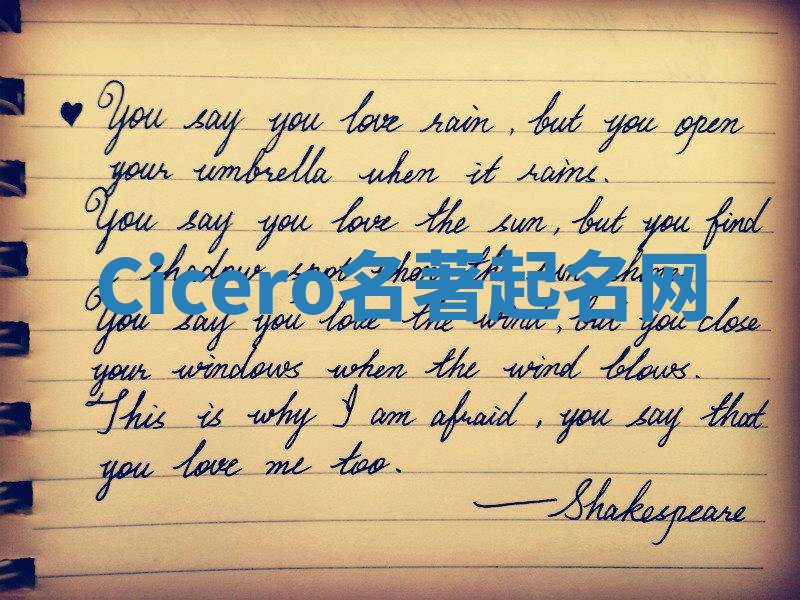 You say you love rain, but you open
your umbrella when it rains.
You say you love the sun, but you find
shadow spot when the sun shines.
Cicero名著起名网
You say you love the wind, but you close
your windows when the wind blows.
This is why I am afraid, you say that
you love me too.
—Shakespeare